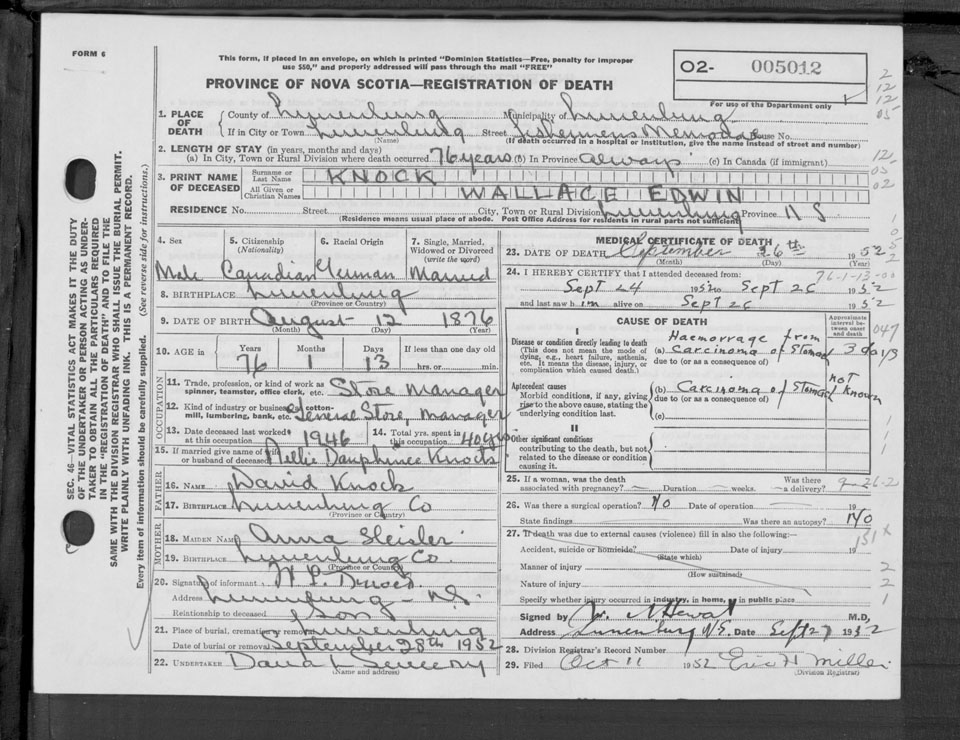 FORM 6
This form, if placed in an envelope, on which is printed "Dominion Statistics—Free, penalty for improper
use $50," and properly addressed will pass through the mail "FREE"
PROVINCE OF NOVA SCOTIA—REGISTRATION OF DEATH
O2- 005012
For use of the Department only
SEC. 46—VITAL STATISTICS ACT MAKES IT THE DUTY
OF THE UNDERTAKER OR PERSON ACTING AS UNDER-
TAKER TO OBTAIN ALL THE PARTICULARS REQUIRED
IN THE "REGISTRATION OF DEATH" AND TO FILE THE
SAME WITH THE DIVISION REGISTRAR WHO SHALL ISSUE THE BURIAL PERMIT.
WRITE PLAINLY WITH UNFADING INK. THIS IS A PERMANENT RECORD.
Every item of information should be carefully supplied. (See reverse side for instructions.)
1. PLACE OF DEATH County of Lunenburg Municipality of Lunenburg
If in City or Town Lunenburg Street Fishermens Memorial House No.
(Name) (If death occurred in a hospital or institution, give the name instead of street and number)
2. LENGTH OF STAY (in years, months and days)
(a) In City, Town or Rural Division where death occurred 76 years (b) In Province always (c) In Canada (if immigrant)
3. PRINT NAME OF DECEASED Surname or Last Name KNOCK
All Given or Christian Names WALLACE EDWIN
RESIDENCE No. Street City, Town or Rural Division Lunenburg Province N S
(Residence means usual place of abode. Post Office Address for residents in rural parts not sufficient)
4. Sex 5. Citizenship (Nationality) 6. Racial Origin 7. Single, Married, Widowed or Divorced (write the word)
Male Canadian German Married
8. BIRTHPLACE Lunenburg
(Province or Country)
9. DATE OF BIRTH August 12 1876
(Month) (Day) (Year)
10. AGE in Years Months Days If less than one day old
76 13 hrs. or min.
OCCUPATION
11. Trade, profession, or kind of work as spinner, teamster, office clerk, etc. Store Manager
12. Kind of industry or business, cotton-mill, lumbering, bank, etc. General Store, Manager
13. Date deceased last worked at this occupation 1946 14. Total yrs. spent in this occupation 40 yrs
15. If married give name of wife or husband of deceased Nellie Dauphinee Knock
FATHER
16. NAME David Knock
17. BIRTHPLACE Lunenburg Co
(Province or Country)
MOTHER
18. MAIDEN NAME Anna Heisler
19. BIRTHPLACE Lunenburg Co.
(Province or Country)
20. Signature of informant
Address Lunenburg - N.S.
Relationship to deceased Son
21. Place of burial, cremation or removal Lunenburg
Date of burial or removal September 28th 1952
22. UNDERTAKER
(Name and address)
MEDICAL CERTIFICATE OF DEATH
23. DATE OF DEATH September 26th 1952
(Month) (Day) (Year)
24. I HEREBY CERTIFY that I attended deceased from:
76-1-13-00
Sept 24 1952 to Sept 26 1952
and last saw him alive on Sept 26 1952
CAUSE OF DEATH
Approximate interval between onset and death
I
Disease or condition directly leading to death
(This does not mean the mode of dying, e.g., heart failure, asthenia, etc. It means the disease, injury, or complication which caused death.)
Haemorrage from
(a) Carcinoma of Stomach 3 days
due to (or as a consequence of)
Antecedent causes
Morbid conditions, if any, giving rise to the above cause, stating the underlying condition last.
(b) Carcinoma of Stomach not known
due to (or as a consequence of)
(c)
II
Other significant conditions
contributing to the death, but not related to the disease or condition causing it.
25. If a woman, was the death associated with pregnancy? Duration weeks. Was there a delivery?
9-26-2
26. Was there a surgical operation? No Date of operation 19
State findings Was there an autopsy? No
27. If death was due to external causes (violence) fill in also the following:—
Accident, suicide or homicide? Date of injury 19
(State which)
151X
Manner of injury
(How sustained)
Nature of injury
Specify whether injury occurred in industry, in home, or in public place
Signed by M.D.
Address Lunenburg N.S. Date Sept 27 1952
28. Division Registrar's Record Number
29. Filed Oct 11 1952 Eric H Miller
(Division Registrar)